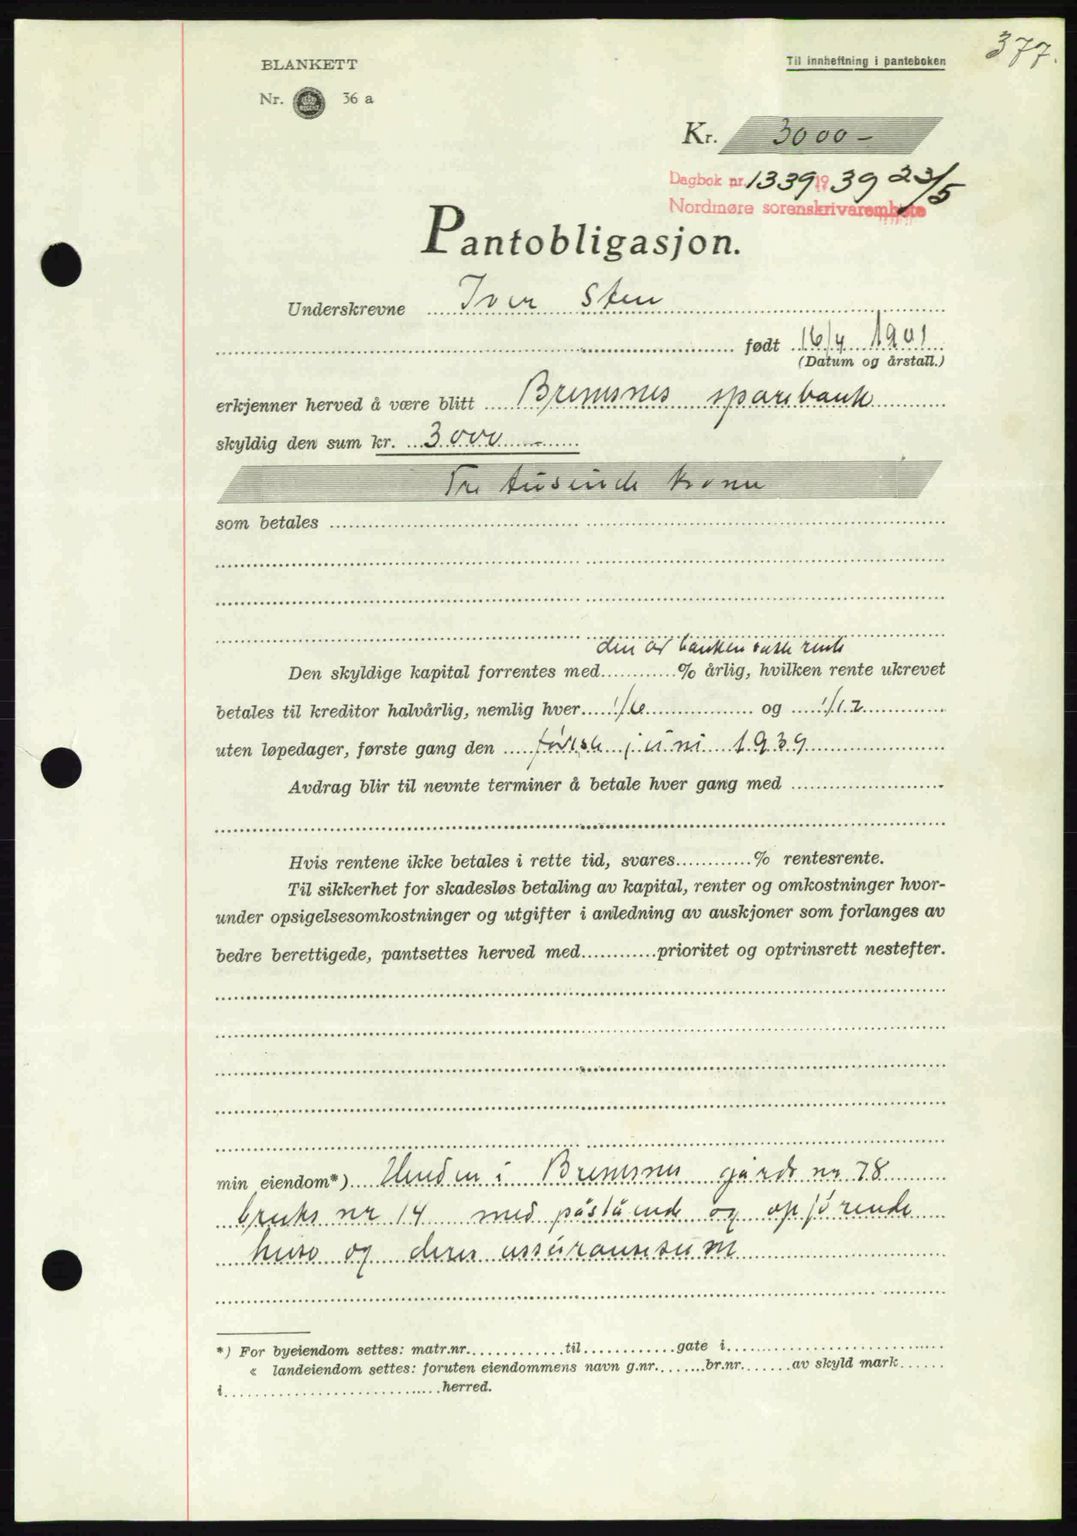 377.
BLANKETT
Til innheftning i panteboken
Nr. 36 a
Kr. 3000 -
Dagbok nr. 1339 19 39 23/5
Nordmøre sorenskriverembete
Pantobligasjon.
Underskrevne Iver Sten
født 16/4 1901
(Datum og årstall.)
erkjenner herved å være blitt Bremsnes sparebank
skyldig den sum kr. 3000 -
Tre tusende kroner
som betales
den av banken rente
Den skyldige kapital forrentes med............% årlig, hvilken rente ukrevet
betales til kreditor halvårlig, nemlig hver 1/6 og 1/12
uten løpedager, første gang den første juni 1939
Avdrag blir til nevnte terminer å betale hver gang med
Hvis rentene ikke betales i rette tid, svares............% rentesrente.
Til sikkerhet for skadesløs betaling av kapital, renter og omkostninger hvor-
under opsigelsesomkostninger og utgifter i anledning av auskjoner som forlanges av
bedre berettigede, pantsettes herved med............prioritet og optrinsrett nestefter.
min eiendom*) i Bremsnes gårds nr 78
bruks nr 14 med påstående og opførende
huse og deres assuransesum
*) For byeiendom settes: matr.nr..............til..............gate i
« landeiendom settes: foruten eiendommens navn g.nr.......br.nr.......av skyld mark......
i..............................herred.